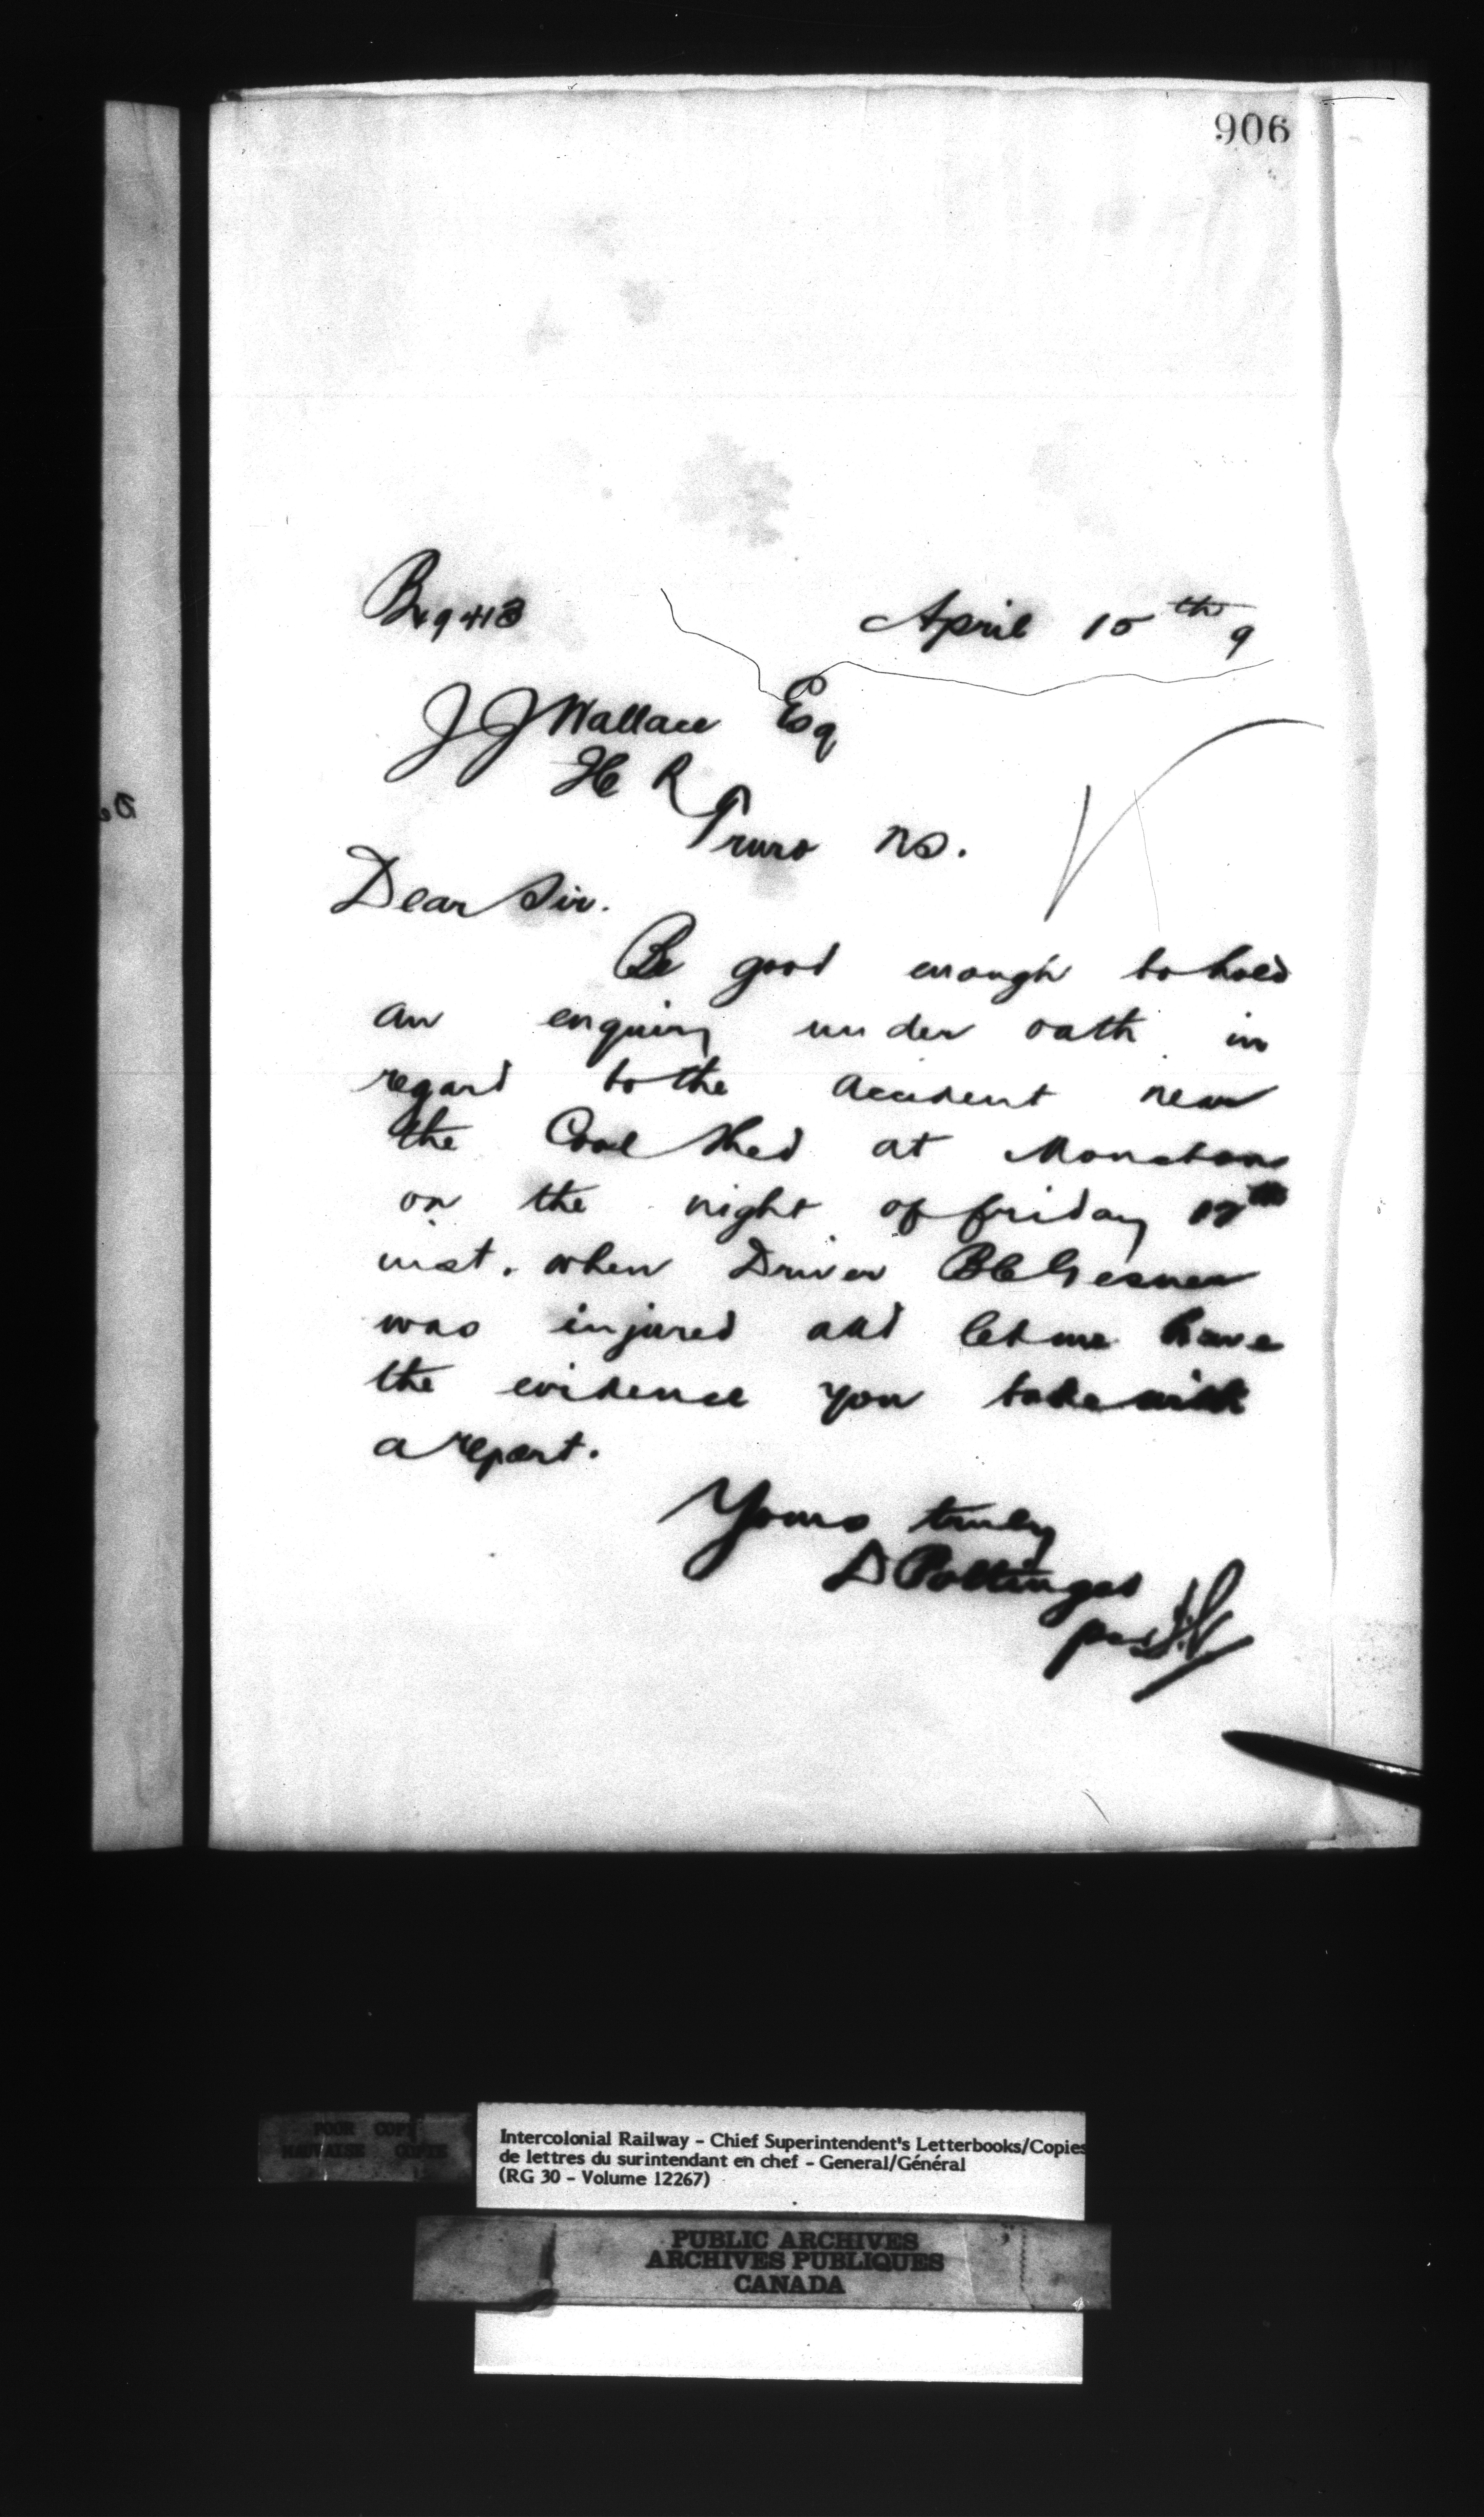 906
April 15th 9
J J Wallace Esq
Truro NS.
Dear Sir.
Be good enough to hold
an enquiry under oath in
regard to the accident near
the Coal Shed at Moncton
on the night of friday 12th
inst. when Driver
was injured and let me have
the evidence you take with
a report.
Yours truly
D Pottinger
per
POOR COPY
MAUVAISE COPIE
Intercolonial Railway - Chief Superintendent's Letterbooks/Copies
de lettres du surintendant en chef - General/Général
(RG 30 - Volume 12267)
PUBLIC ARCHIVES
ARCHIVES PUBLIQUES
CANADA